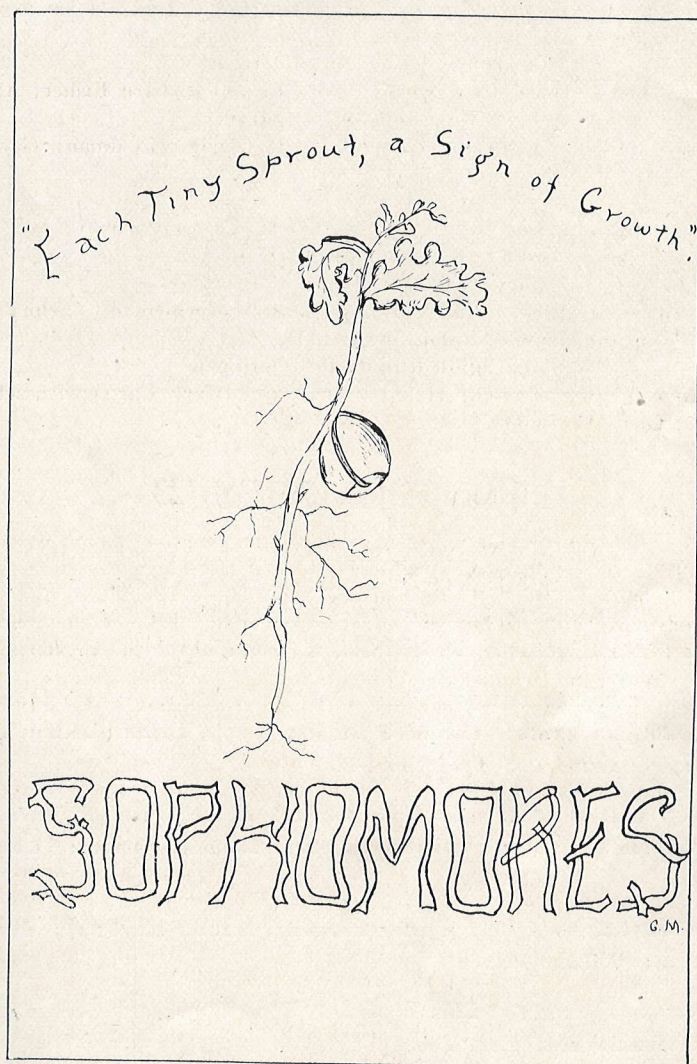 "Each Tiny Sprout, a Sign of Growth."
SOPHOMORES
G.M.